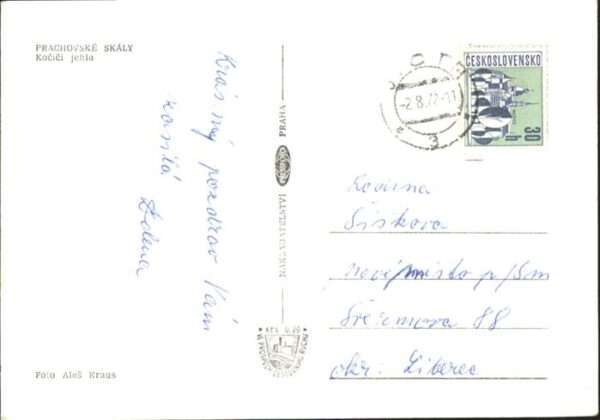 PRACHOVSKÉ SKÁLY
Kočičí jehla
Krásný pozdrav Vám
zasílá
Zdena
NAKLADATELSTVÍ PRAHA
ČESKOSLOVENSKO
30
h
-2.8.72-11
3
Rodina
Šiskova
Nové město p/Sm
88
okr: Liberec
Foto Aleš Kraus